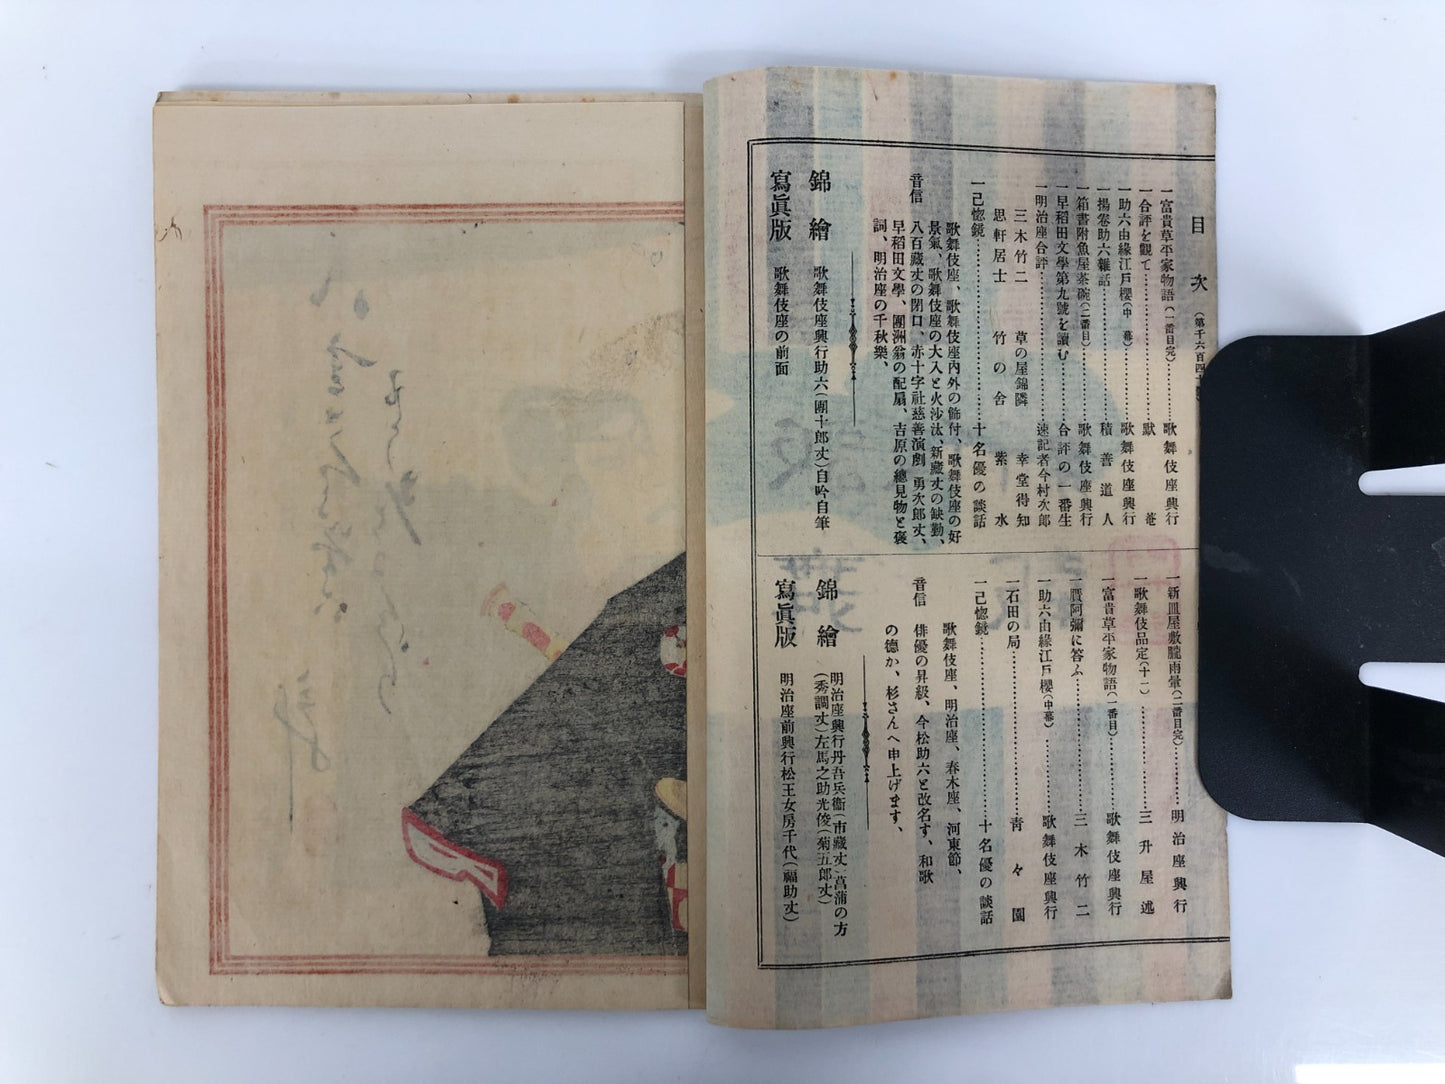 目次
一富貴草平家物語(一番目完)………歌舞伎座興行
一合評を觀て………默菴
一助六由緣江戸櫻(中幕)………歌舞伎座興行
一揚卷助六雜話………積善道人
一箱書附魚屋茶碗(二番目)………歌舞伎座興行
一早稻田文學第九號を讀む………合評の一番生
一明治座合評………速記者今村次郎
三木竹二 草の屋錦隣 幸堂得知
思軒居士 竹の舍 紫水
一己惚鏡………十名優の談話
歌舞伎座、歌舞伎座內外の飾付、歌舞伎座の好
景氣、歌舞伎座の大入と火沙汰、新藏丈の缺勤、
音信 八百藏丈の閉口、赤十字社慈善演劇、勇次郎丈、
早稻田文學、團洲翁の配扇、吉原の總見物と褒
詞、明治座の千秋樂、
錦繪 歌舞伎座興行助六(團十郎丈)自吟自筆
寫眞版 歌舞伎座の前面
一新皿屋敷朧雨暈(二番目完)………明治座興行
一歌舞伎品定(十一)………三升屋述
一富貴草平家物語(一番目)………歌舞伎座興行
一贋阿彌に答ふ………三木竹二
一助六由緣江戸櫻(中幕)………歌舞伎座興行
一石田の局………靑々園
一己惚鏡………十名優の談話
歌舞伎座、明治座、春木座、河東節、
音信 俳優の昇級、今松助六と改名す、和歌
の德か、杉さんへ申上げます、
錦繪 明治座興行丹吾兵衞(市藏丈)菖蒲の方
(秀調丈)左馬之助光俊(菊五郎丈)
寫眞版 明治座前興行松王女房千代(福助丈)